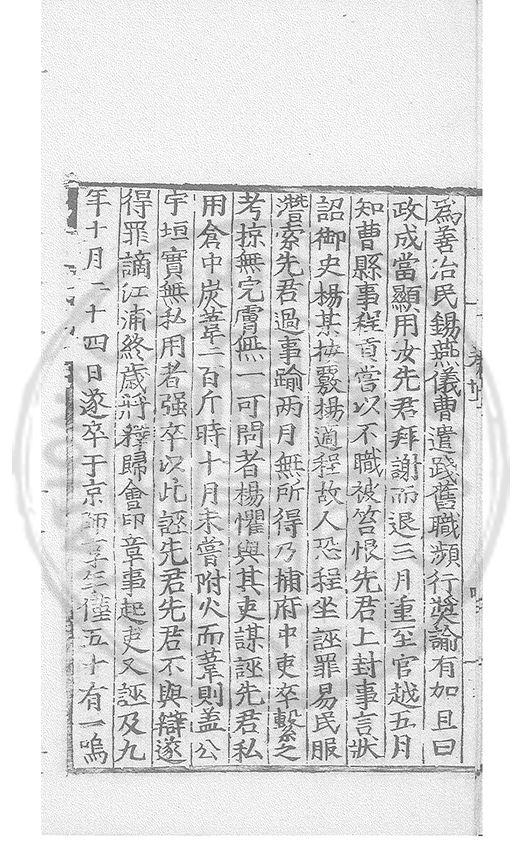 為善治民錫燕儀曹遣踐舊職頻行奬諭有加且曰
政成當顯用汝先君拜謝而退三月重至官越五月
知曹縣事程貢嘗以不職被笞恨先君上封事言狀
詔御史楊某按覈楊適程故人恐程坐誣罪易民服
潛索先君過事踰两月無所得乃捕府中吏卒繫之
考掠無完膚無一可問者楊懼與其吏謀誣先君私
用倉中炭葦二百斤時十月未嘗附火而葦則盖公
宇垣實無私用者强卒以此誣先君先君不與辯遂
得罪謫江浦終歲將釋歸會印章事起吏又誣及九
年十月二十四日遂卒于京師享年僅五十有一嗚